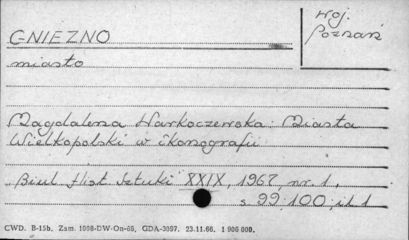 GNIEZNO
woj.
Poznań
miasto
Magdalena Warkoczewska: Miasta
Wielkopolski w ikonografii
"Biul. Hist. Sztuki" XXIX, 1967, nr. 1,
s. 99, 100, il. 1
CWD. B-15b. Zam. 1098-DW-On-66, GDA-3097. 23.11.66. 1 900 000.